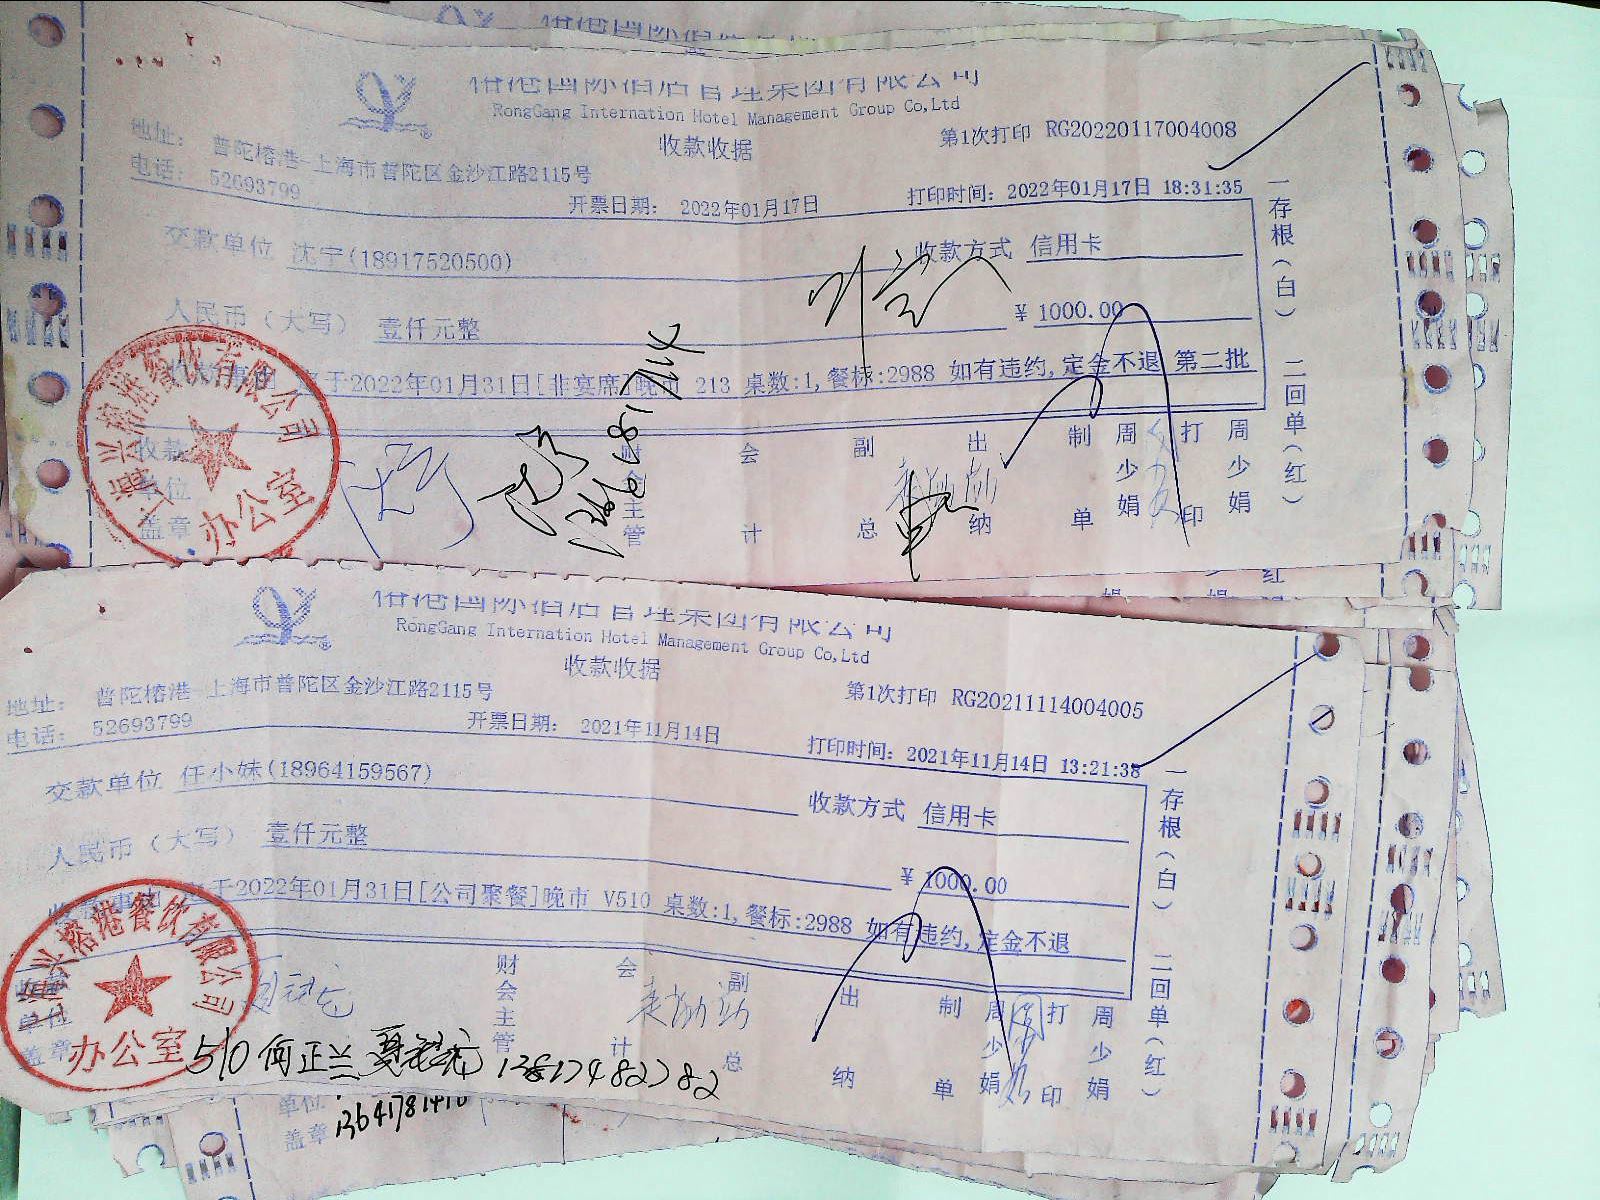 榕港国际酒店管理集团有限公司
RongGang International Hotel Management Group Co,Ltd
收款收据
第1次打印 RG20220117004008
地址： 普陀榕港-上海市普陀区金沙江路2115号
电话： 52693799
开票日期： 2022年01月17日
打印时间：2022年01月17日 18:31:35
交款单位 沈宁(18917520500)
收款方式 信用卡
人民币（大写） 壹仟元整
￥1000.00
于2022年01月31日[非宴席]晚市 213 桌数:1,餐标:2988 如有违约,定金不退 第二批
收款单位盖章
财会主管
会计
副总
出纳
制单 周少娟
打印 周少娟
一存根（白） 二回单（红）
上海兴榕港餐饮有限公司
办公室
榕港国际酒店管理集团有限公司
RongGang Internation Hotel Management Group Co,Ltd
收款收据
第1次打印 RG20211114004005
地址： 普陀榕港-上海市普陀区金沙江路2115号
电话： 52693799
开票日期： 2021年11月14日
打印时间：2021年11月14日 13:21:38
交款单位 任小妹(18964159567)
收款方式 信用卡
人民币（大写） 壹仟元整
￥1000.00
于2022年01月31日[公司聚餐]晚市 V510 桌数:1,餐标:2988 如有违约,定金不退
单位
盖章
财会主管
会计
副总
出纳
制单 周少娟
打印 周少娟
一存根（白） 二回单（红）
兴榕港餐饮有限公司
办公室
510 何正兰
13817482782
单位
盖章